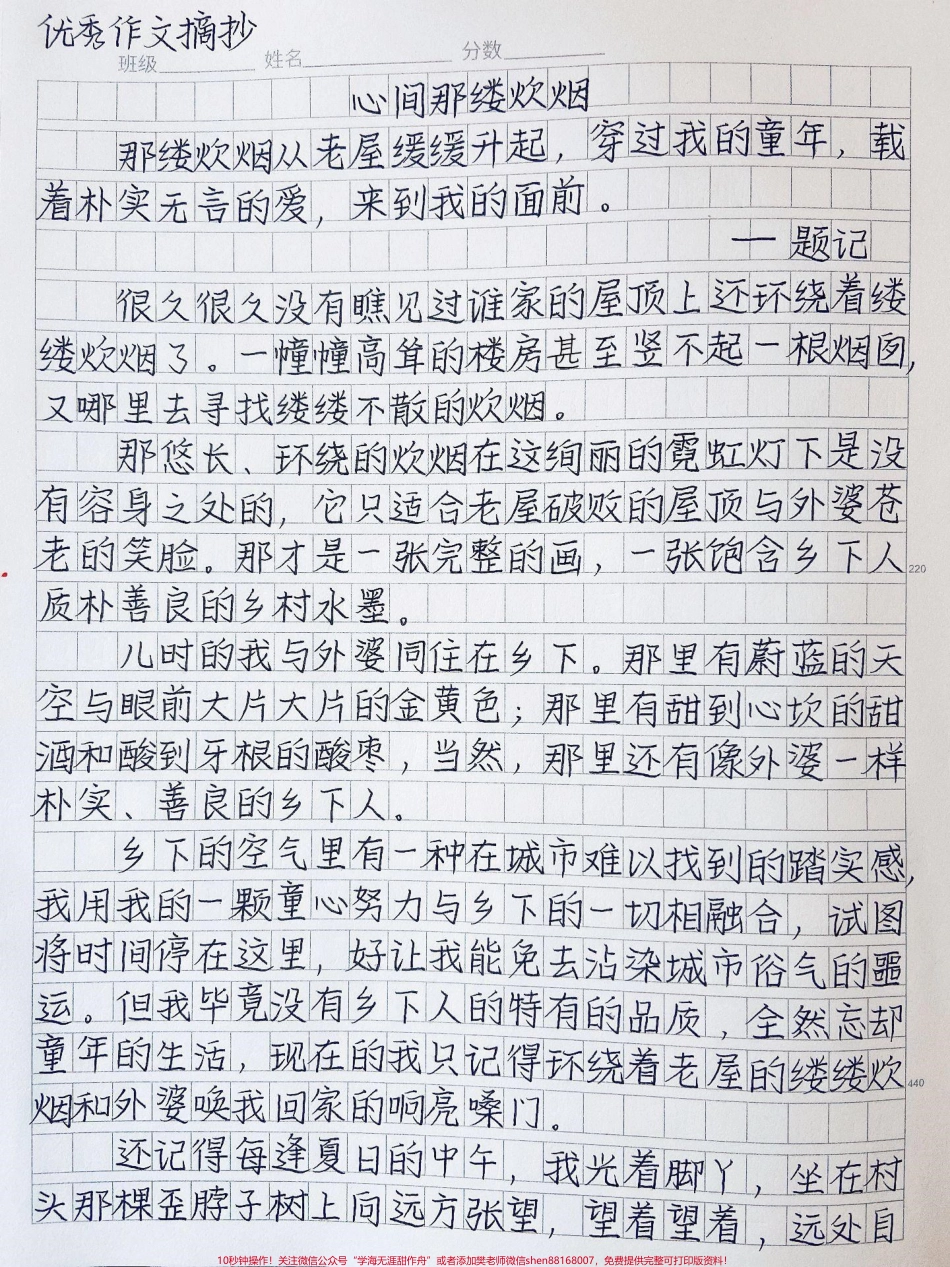 优秀作文摘抄
班级 姓名 分数
心间那缕炊烟
那缕炊烟从老屋缓缓升起，穿过我的童年，载
着朴实无言的爱，来到我的面前。
一题记
很久很久没有瞧见过谁家的屋顶上还环绕着缕
缕炊烟了。一幢幢高耸的楼房甚至竖不起一根烟囱，
又哪里去寻找缕缕不散的炊烟。
那悠长、环绕的炊烟在这绚丽的霓虹灯下是没
有容身之处的，它只适合老屋破败的屋顶与外婆苍
老的笑脸。那才是一张完整的画，一张饱含乡下人
220
质朴善良的乡村水墨。
儿时的我与外婆同住在乡下。那里有蔚蓝的天
空与眼前大片大片的金黄色；那里有甜到心坎的甜
酒和酸到牙根的酸枣，当然，那里还有像外婆一样
朴实、善良的乡下人。
乡下的空气里有一种在城市难以找到的踏实感，
我用我的一颗童心努力与乡下的一切相融合，试图
将时间停在这里，好让我能免去沾染城市俗气的噩
运。但我毕竟没有乡下人的特有的品质，全然忘却
童年的生活，现在的我只记得环绕着老屋的缕缕炊
440
烟和外婆唤我回家的响亮嗓门。
还记得每逢夏日的中午，我光着脚丫，坐在村
头那棵歪脖子树上向远方张望，望着望着，远处自
10秒钟操作！关注微信公众号“学海无涯甜作舟”或者添加樊老师微信shen88168007，免费提供完整可打印版资料！